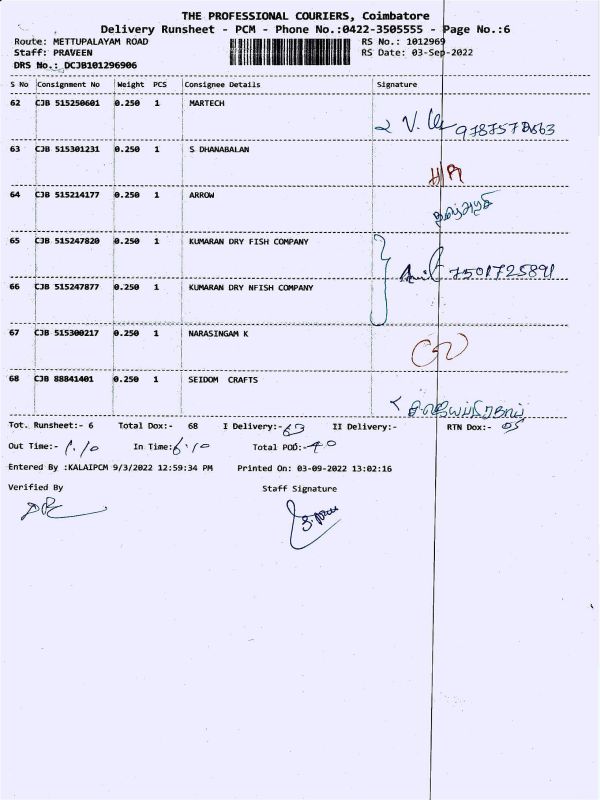 THE PROFESSIONAL COURIERS, Coimbatore
Delivery Runsheet - PCM - Phone No.:0422-3505555 - Page No.:6
Route: METTUPALAYAM ROAD RS No.: 1012969
Staff: PRAVEEN RS Date: 03-Sep-2022
DRS No.: DCJB101296906
S No Consignment No Weight PCS Consignee Details Signature
62 CJB 515250601 0.250 1 MARTECH
63 CJB 515301231 0.250 1 S DHANABALAN
64 CJB 515214177 0.250 1 ARROW
65 CJB 515247820 0.250 1 KUMARAN DRY FISH COMPANY
7501725891
66 CJB 515247877 0.250 1 KUMARAN DRY NFISH COMPANY
67 CJB 515300217 0.250 1 NARASINGAM K
68 CJB 88841401 0.250 1 SEIDOM CRAFTS
Tot. Runsheet:- 6 Total Dox:- 68 I Delivery:- 63 II Delivery:- RTN Dox:- 05
Out Time:- 1.10 In Time: 6.10 Total POD:- 40
Entered By :KALAIPCM 9/3/2022 12:59:34 PM Printed On: 03-09-2022 13:02:16
Verified By Staff Signature